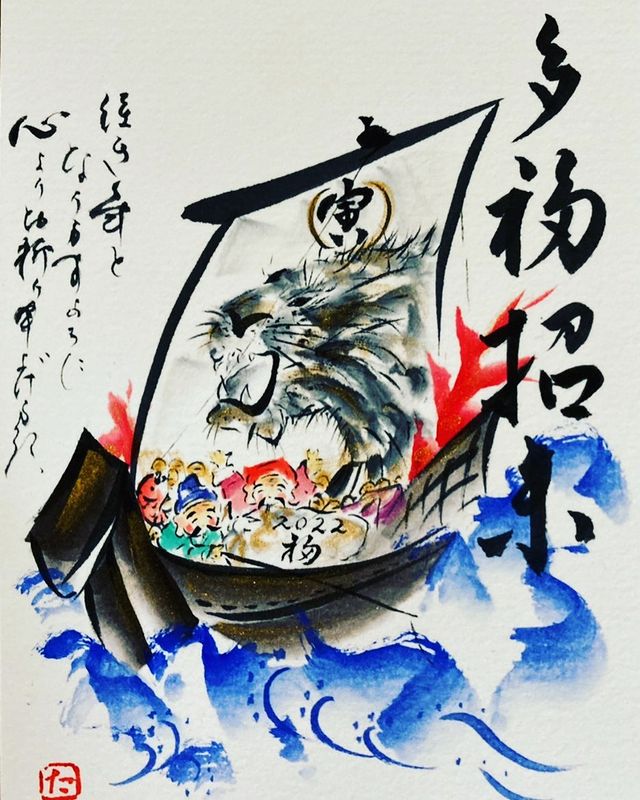 多福招来
寅
2022
福
佳き年と
なりますように
心よりお祈り申し上げます
た